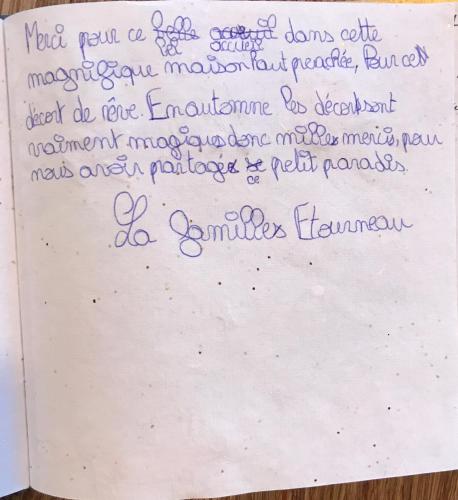 Merci pour ce bel accueil dans cette
magnifique maison haut perchée, Pour cet
décort de rêve. En automne les décort sont
vraiment magique donc milles mercis, pour
nous avoir partagé ce petit paradis.
La familles Etourneau